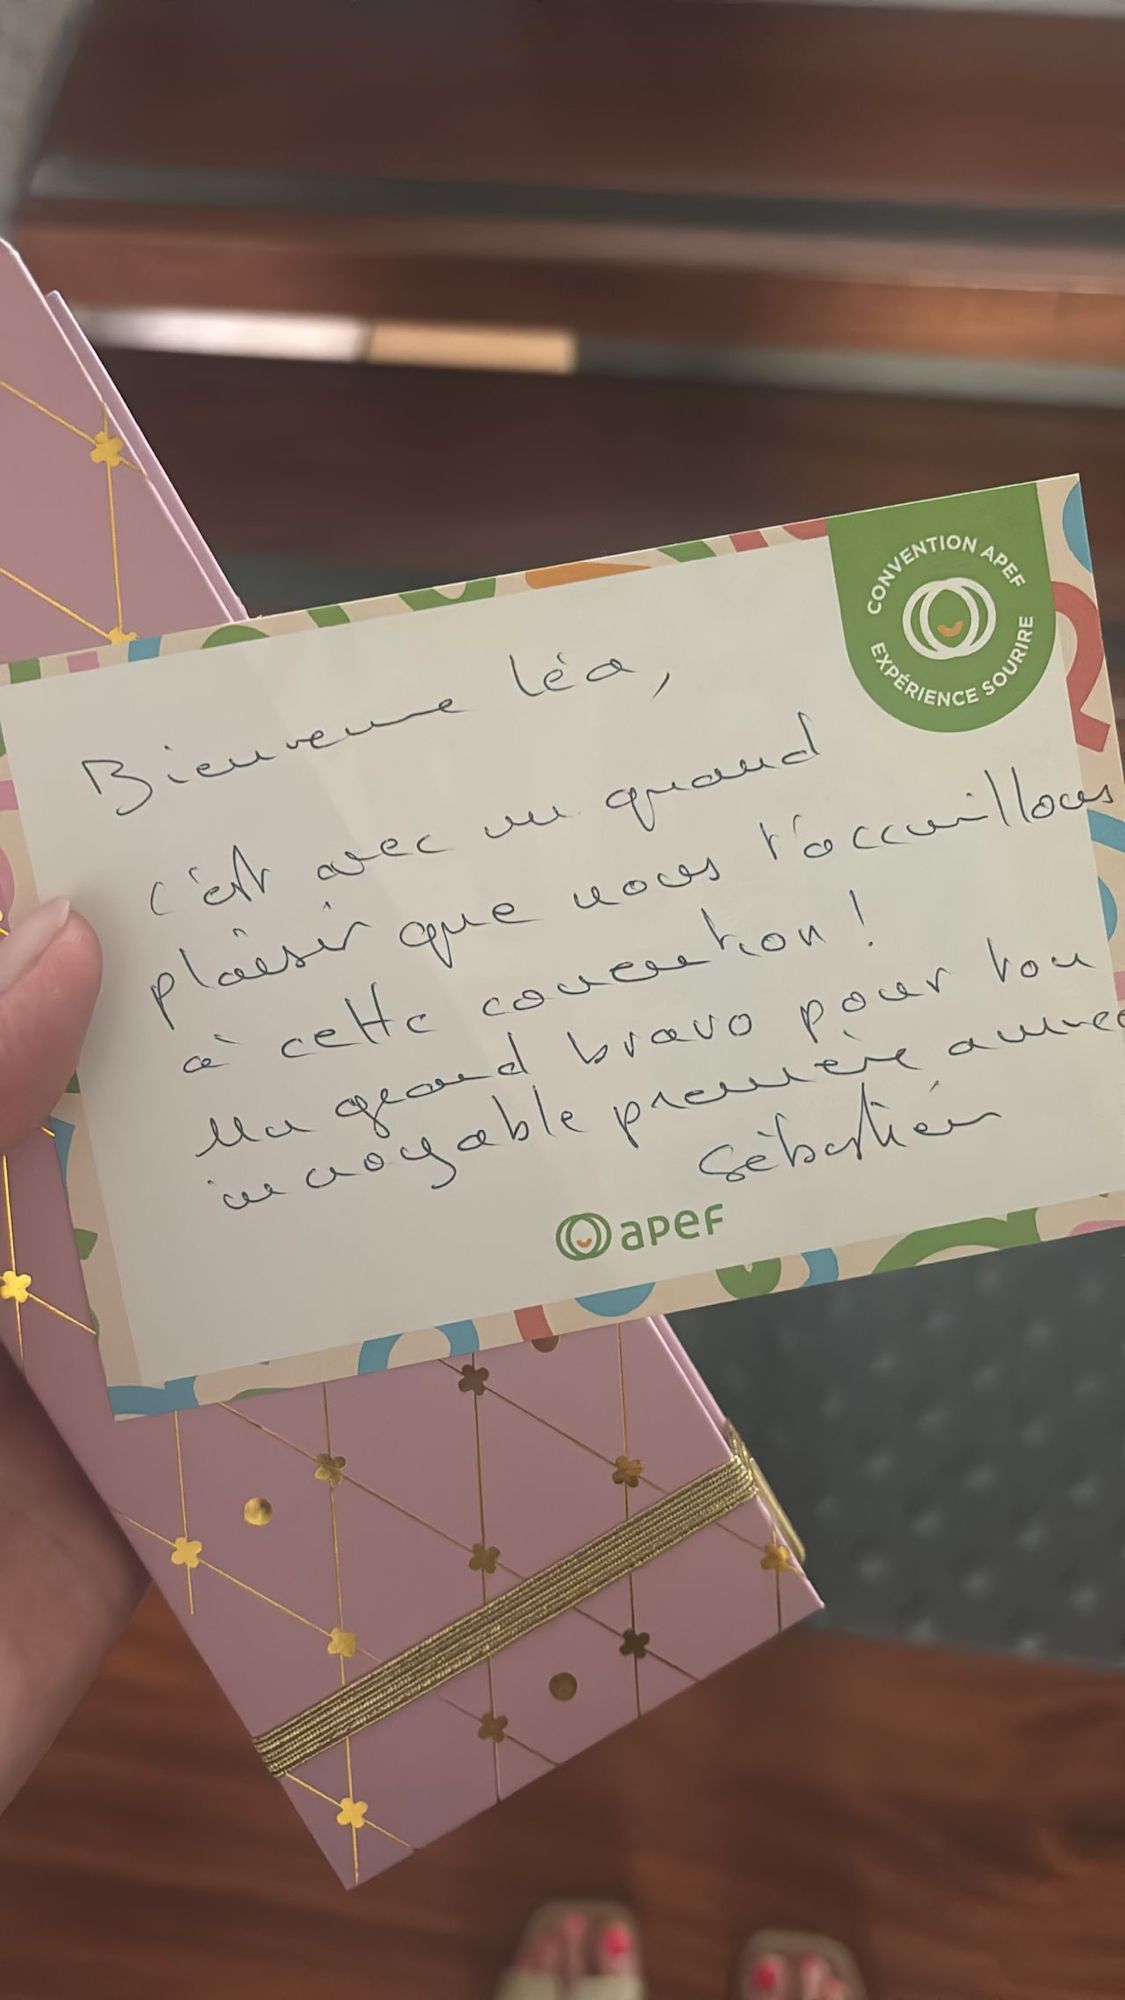 CONVENTION APEF
EXPÉRIENCE SOURIRE
Bienvenue Léa,
c'est avec un grand
plaisir que nous t'accueillons
à cette convention !
Un grand bravo pour ton
incroyable première année
Sébastien
apef